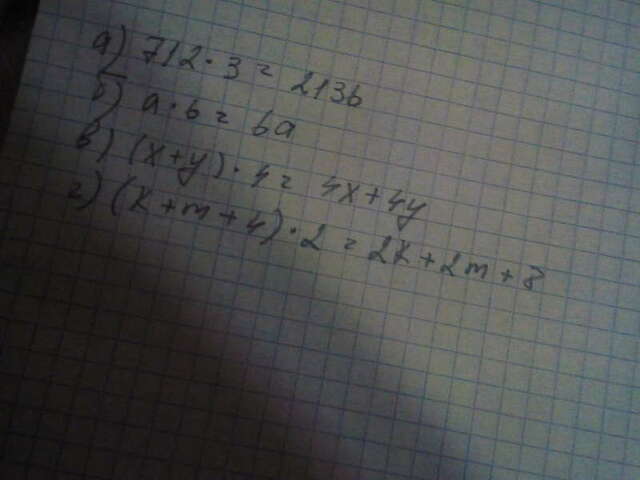 а) 712 · 3 = 2136
б) a · 6 = 6a
в) (x+y) · 4 = 4x+4y
г) (k+m+4) · 2 = 2k+2m+8